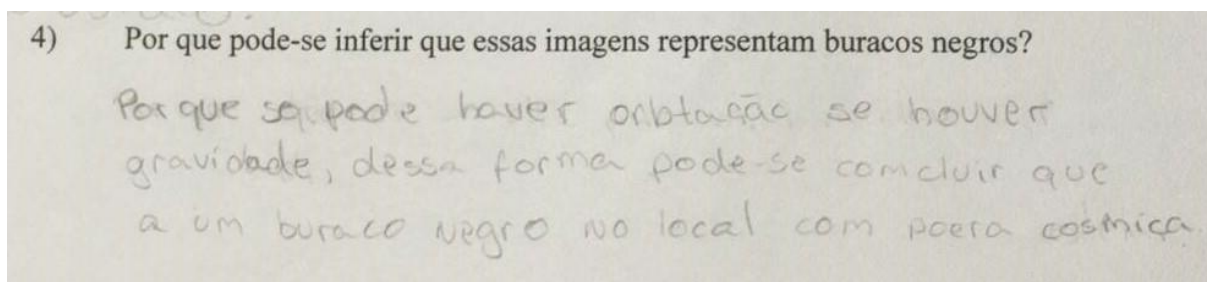 4) Por que pode-se inferir que essas imagens representam buracos negros?
Por que so pode haver orbtação se houver
gravidade, dessa forma pode-se comcluir que
a um buraco negro no local com poera cosmica